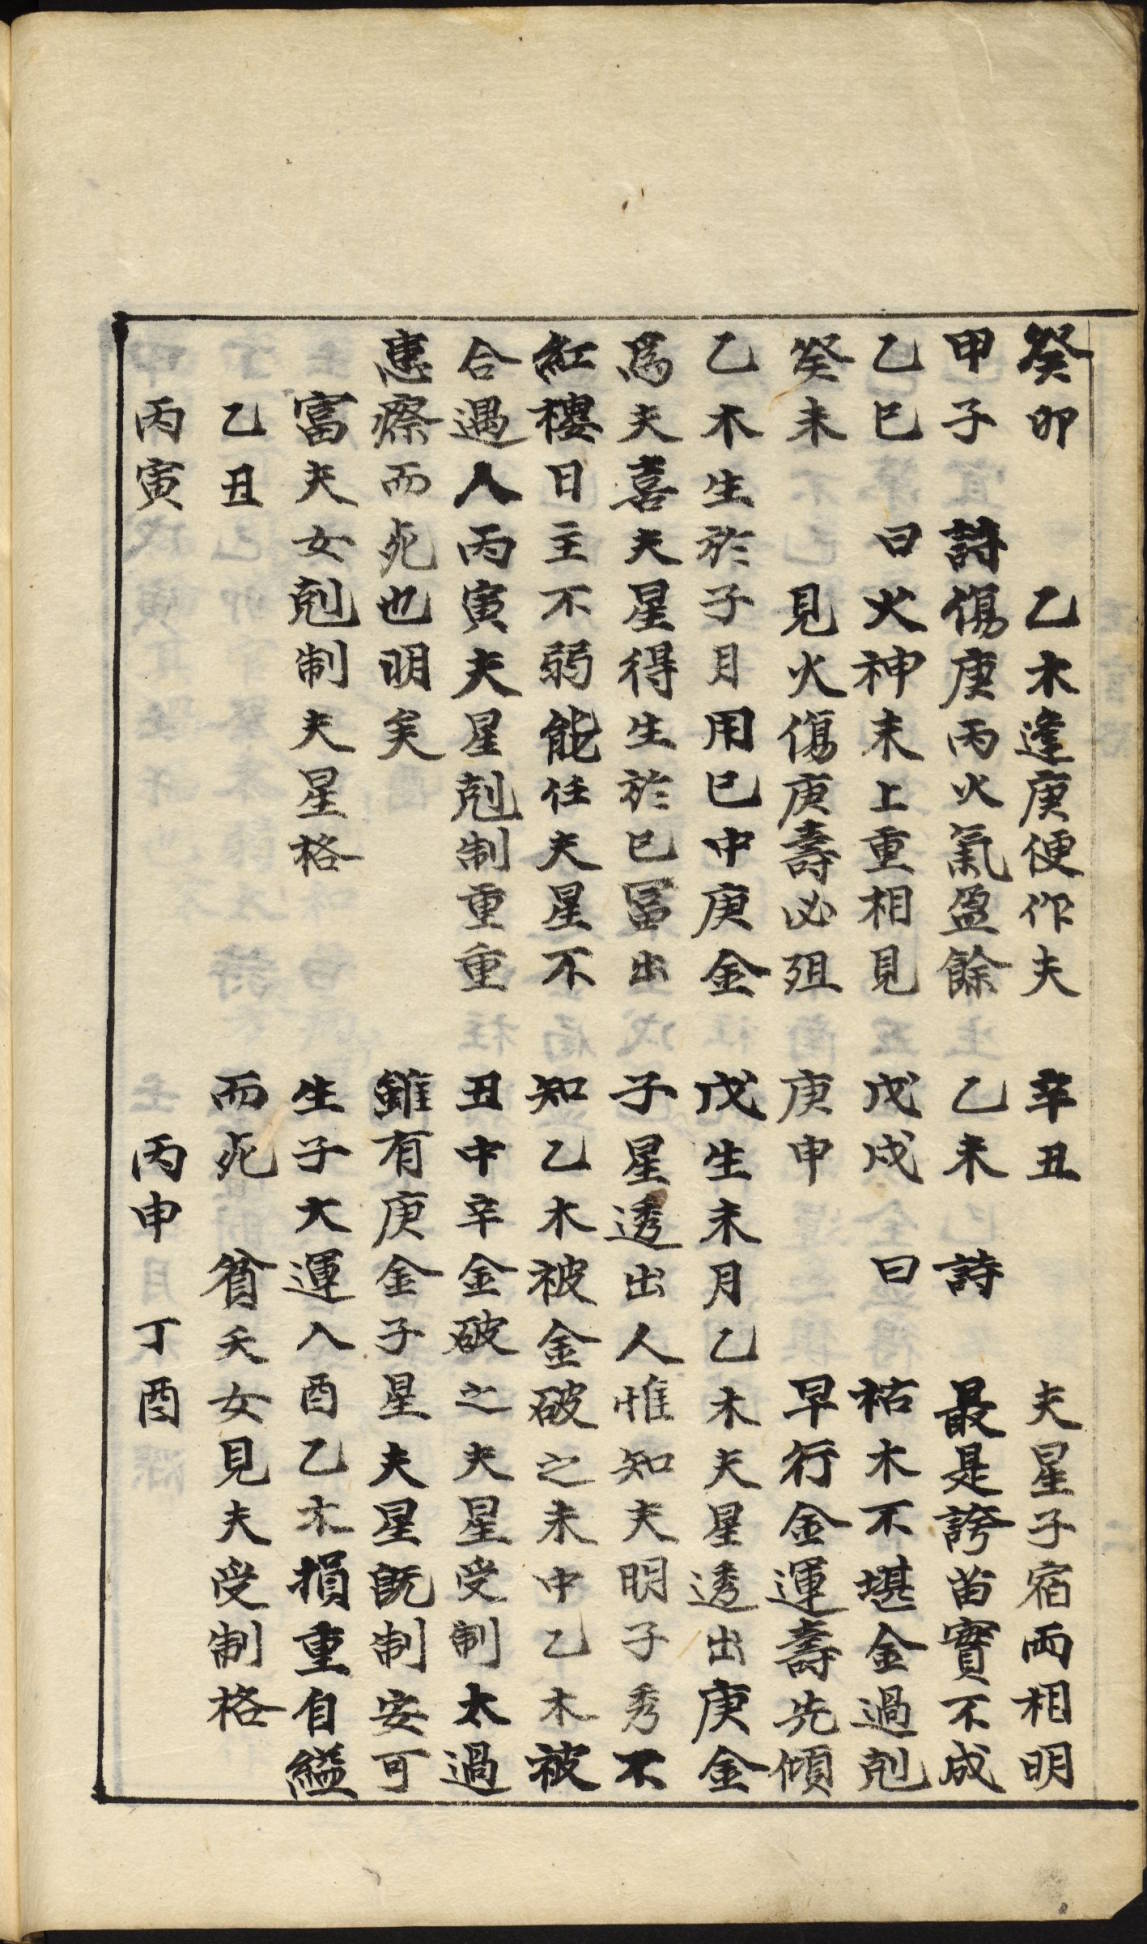 癸卯　乙木逢庚便作夫
甲子　詩傷庚丙火氣盈餘
乙巳　曰火神未上重相見
癸未　見火傷庚壽必殂
乙木生於子月用巳中庚金
爲夫喜夫星得生於巳冨出
紅樓日主不弱能任夫星不
合遇人丙寅夫星剋制重重
患瘵而死也明矣
富夫女剋制夫星格
乙丑
丙寅
辛丑　夫星子宿兩相明
乙未　詩　最是誇苗實不成
戊戌　曰　枯木不堪金過剋
庚申　早行金運壽先傾
戊生未月乙木夫星透出庚金
子星透出人惟知夫明子秀不
知乙木被金破之未中乙木被
丑中辛金破之夫星受制太過
雖有庚金子星夫星既制安可
生子大運入酉乙木損重自縊
而死　貧夭女見夫受制格
丙申　丁酉